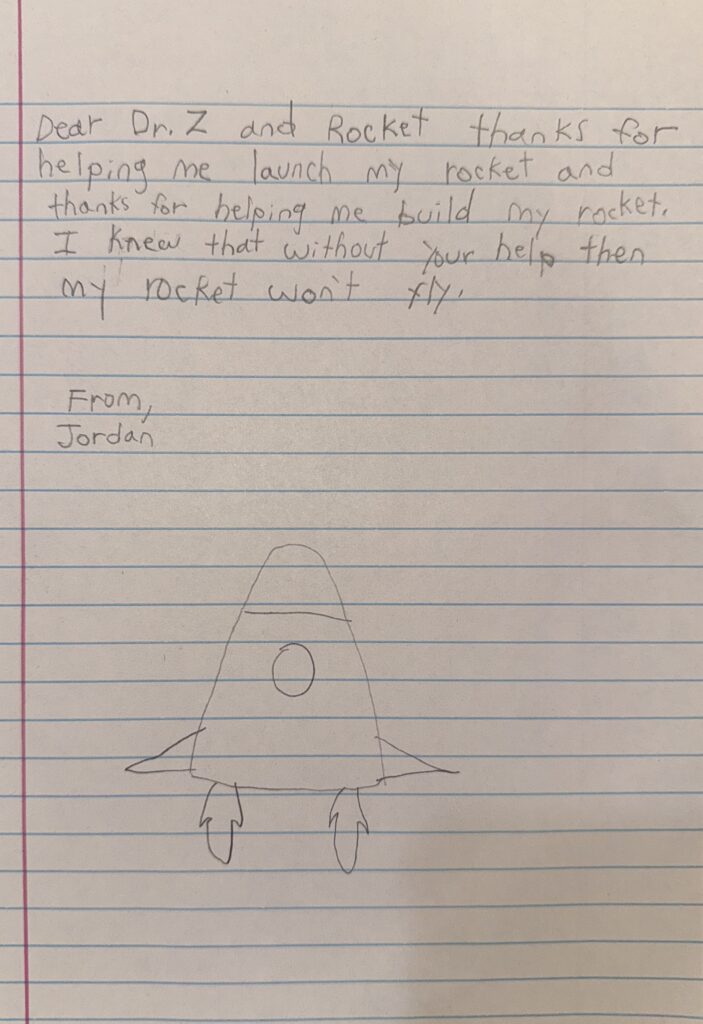 Dear Dr. Z and Rocket thanks for
helping me launch my rocket and
thanks for helping me build my rocket.
I knew that without your help then
my rocket won't fly.
From,
Jordan